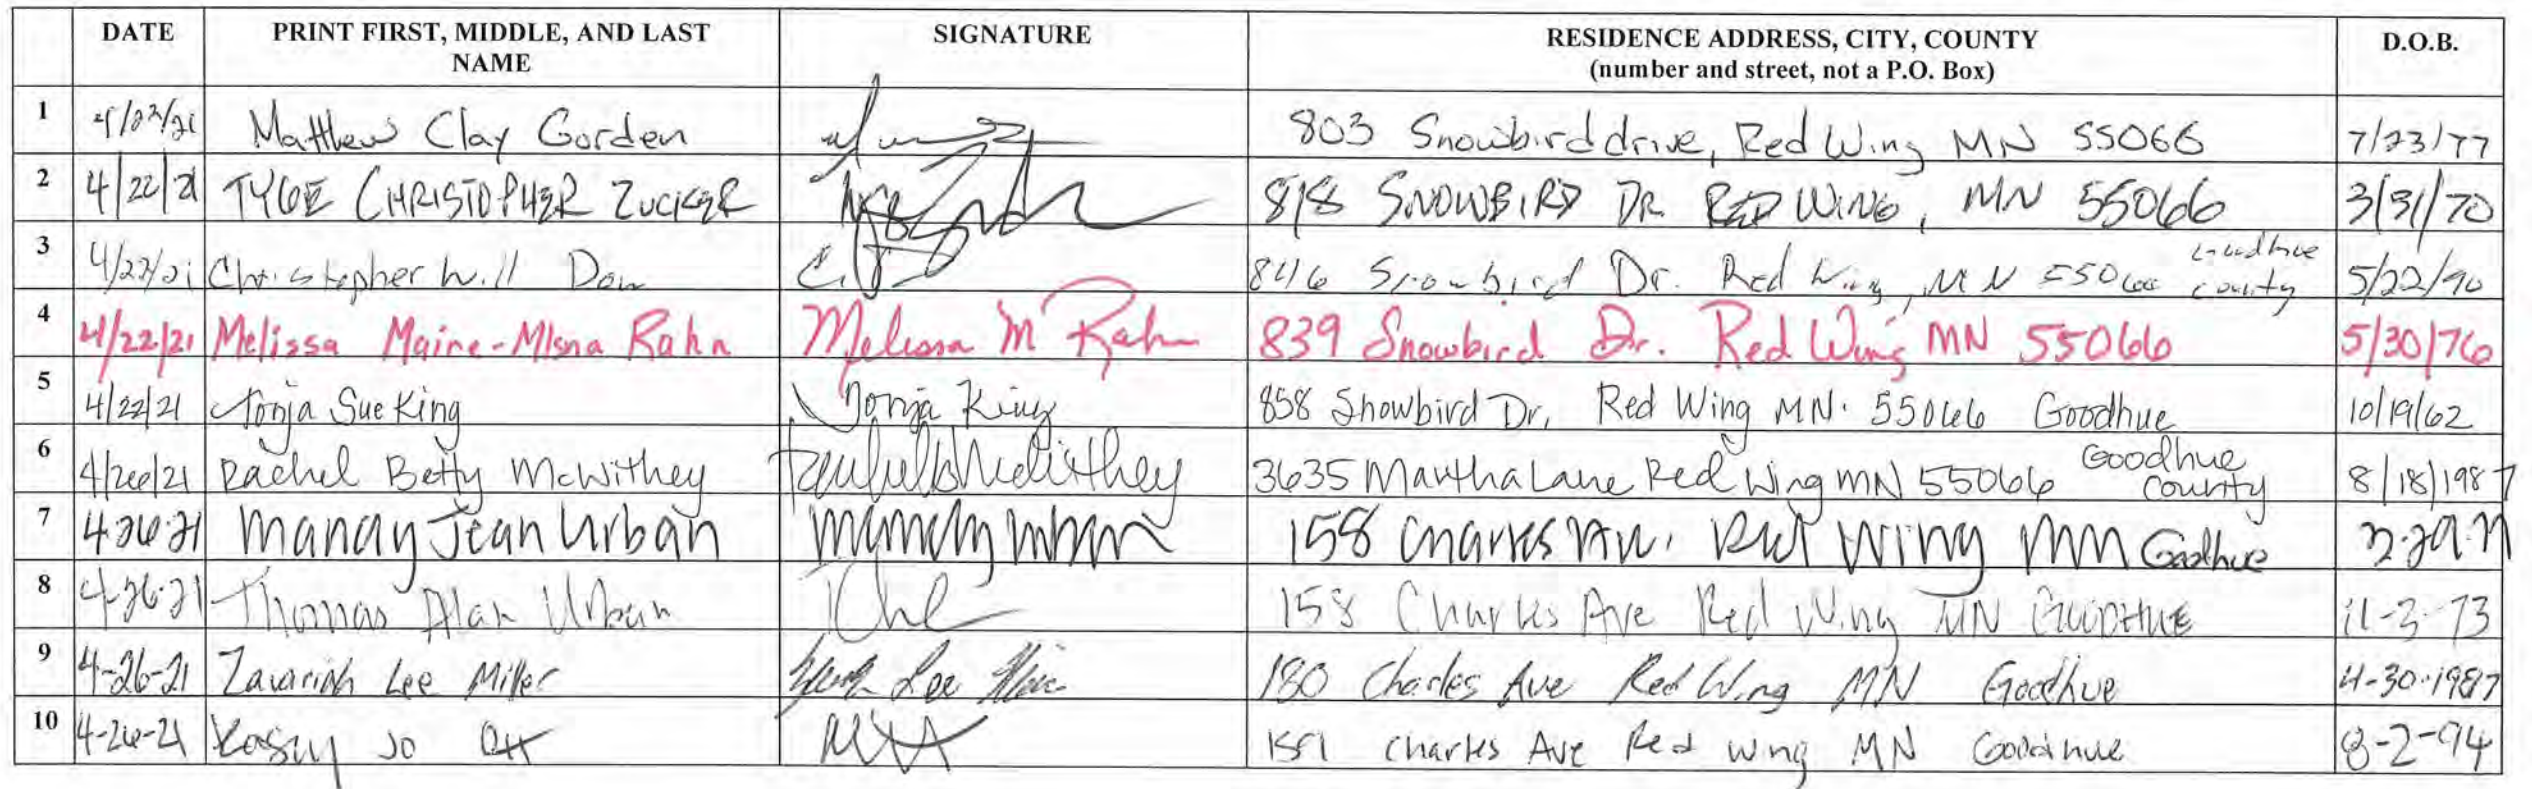 DATE PRINT FIRST, MIDDLE, AND LAST NAME SIGNATURE RESIDENCE ADDRESS, CITY, COUNTY (number and street, not a P.O. Box) D.O.B.
1 4/22/21 Matthew Clay Gorden 803 Snowbird drive, Red Wing MN 55066 7/23/77
2 4/22/21 TYGE CHRISTOPHER ZUCKER 818 SNOWBIRD DR. RED WING, MN 55066 3/31/70
3 4/22/21 Christopher Will Dow 846 Snowbird Dr. Red Wing, MN 55066 Goodhue county 5/22/90
4 4/22/21 Melissa Maine-Misna Rahn Melissa M Rahn 839 Snowbird Dr. Red Wing MN 55066 5/30/76
5 4/22/21 Tonja Sue King Tonja King 858 Snowbird Dr, Red Wing MN. 55066 Goodhue 10/19/62
6 4/26/21 Rachel Betty McWithey Rachel B McWithey 3635 Martha Lane Red Wing MN 55066 Goodhue County 8/18/1987
7 4-26-21 Mandy Jean Urban Mandy Urban 158 Charles Av. Red Wing MN Goodhue
8 4-26-21 Thomas Alan Urban 158 Charles Ave Red Wing MN GOODHUE 11-3-73
9 4-26-21 Zavariah Lee Miller Lee 180 Charles Ave Red Wing MN Goodhue 4-30-1987
10 4-26-21 Kasey Jo Ott 1591 Charles Ave Red Wing MN Goodhue 8-2-94